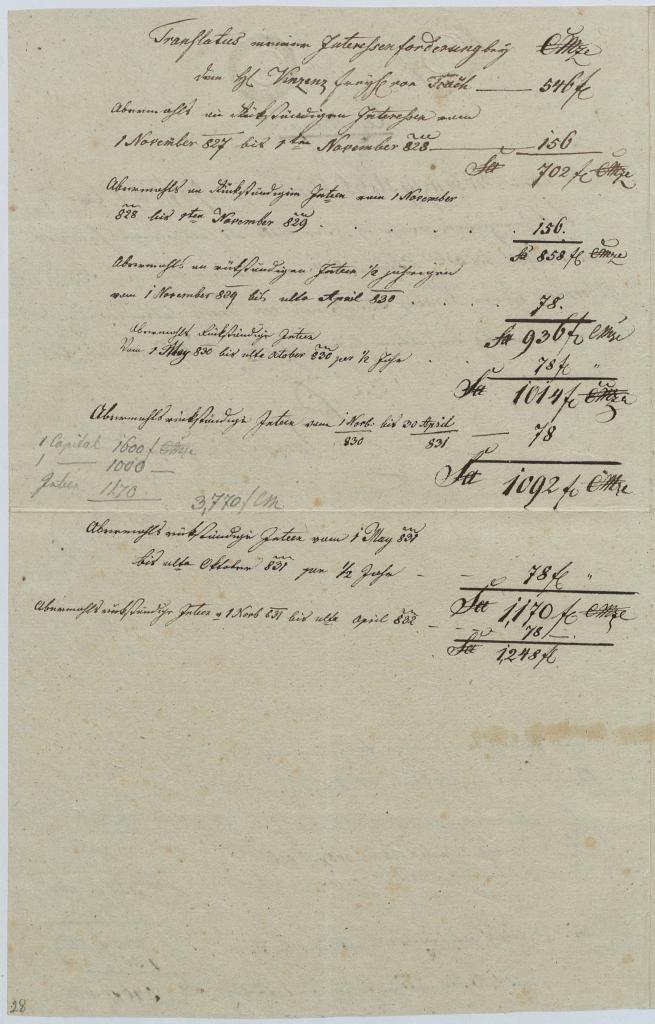 Translatus meiner Interessenforderung bey CMze
dem H. Vinzenz Freyh von 546 f
Abermahls an Rükständigen Interessen vom
1 November 827 bis 1ten November 828 156
702 f CMze
Abermahls an Rükständigen Inteen vom 1 November
828 bis 1ten November 829 . . . . 156.
858 f CMze
Abermahls an rükständigen Inteen 1/2 jährigen
vom 1 November 829 bis ulto April 830 . . . 78.
936 f CMze
Abermahls Rükständige Inteen
Vom 1 May 830 bis ulto October 830 per 1/2 Jahr . . 78 f "
1014 f CMze
Abermahls rükständige Inteen vom 1 Novb. 830 bis 30 April 831 — 78
1 Capital 1600 f CMze
1 — 1000 —
1092 f CMze
Inteen 1170. 3,770 f CM
Abermahls rükständige Inteen vom 1 May 831
bis ulto Oktober 831 per 1/2 Jahr - - 78 f "
1,170 f CMze
Abermahls rükständige Inteen v 1 Novb 831 bis ulto April 832 - - - 78 —
1,248 f
28